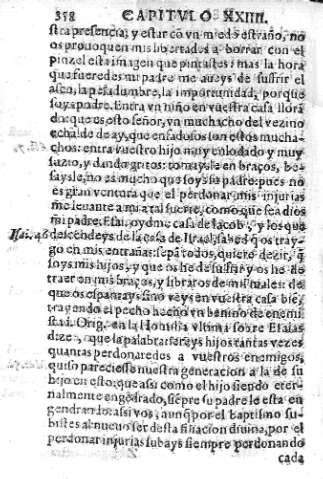 358 CAPITVLO XXIIII.
stra presencia; y estar cō vn miedo estraño, no
os prouoquen mis libertades a borrar con el
pinzel esta imagen que pintastes: mas la hora
que fueredes mi padre me aueys de sufrir el
asco, la pesadumbre, la importunidad, porque
soys padre. Entra vn niño en vuestra casa llorā
do: que es esto señor, vn muchacho del vezino
echalde de ay, que enfadosos son estos mucha-
chos: entra vuestro hijo muy enlodado y muy
suzio, y dando gritos: tomaysle en braços, be-
saysle, no es mucho que soys su padre: pues no
es gran ventura que el perdonar mis injurias
me leuante a mi a tal suerte, como que sea dios
mi padre. Esai. oydme casa de Iacob, y los que
Isai. 46 descendeys de la casa de Israel, sabed q̄ os tray-
go en mis entrañas: sepā todos, quiero dezir, q̄
soys mis hijos, y que os he de sufrir y os he de
traer en mis braços, y libraros de mis males: de
que os espantays sino veys en vuestra casa bie,
trayendo el pecho hecho vn benino de enemi
stad. Orig. en la Homilia vltima sobre Esaias
dize, que la palabra sereys hijos tantas vezes
quantas perdonaredes a vuestros enemigos,
quiso pareciesse nuestra generacion a la de su
hijo en esto: que assi como el hijo siendo eter-
nalmente engēdrado, siēpre su padre le esta en
gendrando: assi vos, aunq̄ por el baptismo su-
bistes al nueuo ser desta filiacion diuina, por el
perdonar injurias subays siempre perdonando
cada